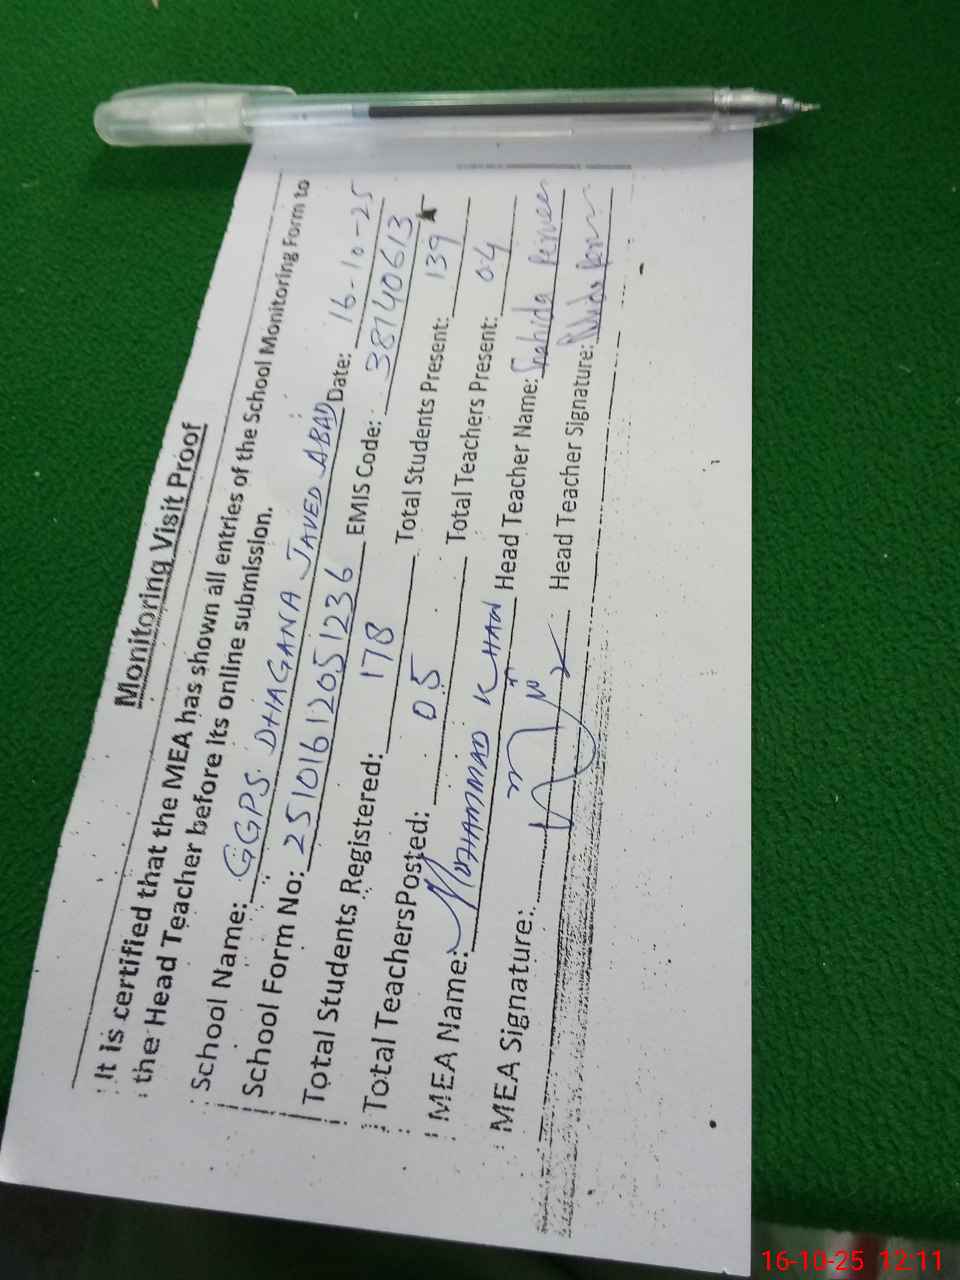 Monitoring Visit Proof
It is certified that the MEA has shown all entries of the School Monitoring Form to
the Head Teacher before its online submission.
School Name: GGPS DHAGANA JAVED ABAD Date: 16-10-25
School Form No: 25101612051236 EMIS Code: 38740613
Total Students Registered: 178 Total Students Present: 139
Total TeachersPosted: 05 Total Teachers Present: 04
MEA Name: MUHAMMAD KHAN Head Teacher Name: Shahida Perveen
MEA Signature: Head Teacher Signature:
16-10-25 12:11